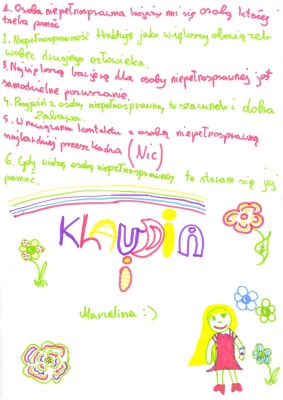 1. Osoba niepełnosprawna kojaży mi się osobą której
trzeba pomóc
2. Niepełnosprawność traktuję jako większy obowiązek
wobec drugiego człowieka.
3. Największą barierą dla osoby niepełnosprawnej jest
samodzielne poruszanie.
4. Przyjaźń z osobą niepełnosprawną to szacunek i dobra
zabawa
5. W nawiązaniu kontaktu z osobą niepełnosprawną
najbardziej przeszkadza (Nic)
6. Gdy widzę osobę niepełnosprawną to staram się jej
pomóc.
KLAUDIA
i
Marcelina :)